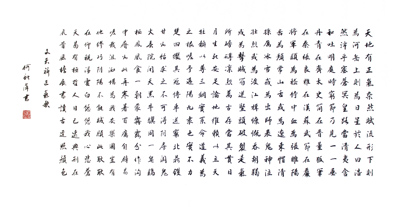 天地有正氣雜然賦流形下則
為河嶽上則為日星於人曰浩
然沛乎塞蒼冥皇路當清夷含
和吐明庭時窮節乃見一一垂
丹青在齊太史簡在晉董狐筆
在秦張良椎在漢蘇武節為嚴
將軍頭為嵇侍中血為張睢陽
齒為顏常山舌或為遼東帽清
操厲冰雪或為出師表鬼神泣
壯烈或為渡江楫慷慨吞胡羯
或為擊賊笏逆豎頭破裂是氣
所磅礴凜烈萬古存當其貫日
月生死安足論地維賴以立天
柱賴以尊三綱實系命道義為
之根嗟予遘陽九隸也實不力
楚囚纓其冠傳車送窮北鼎鑊
甘如飴求之不可得陰房闃鬼
火春院閟天黑牛驥同一皂雞
棲鳳凰食一朝蒙霧露分作溝
中瘠如此再寒暑百癘自辟易
嗟哉沮洳場為我安樂國豈有
他繆巧陰陽不能賊顧此耿耿
在仰視浮雲白悠悠我心悲蒼
天曷有極哲人日已遠典刑在
夙昔風簷展書讀古道照顏色
文天祥正氣歌